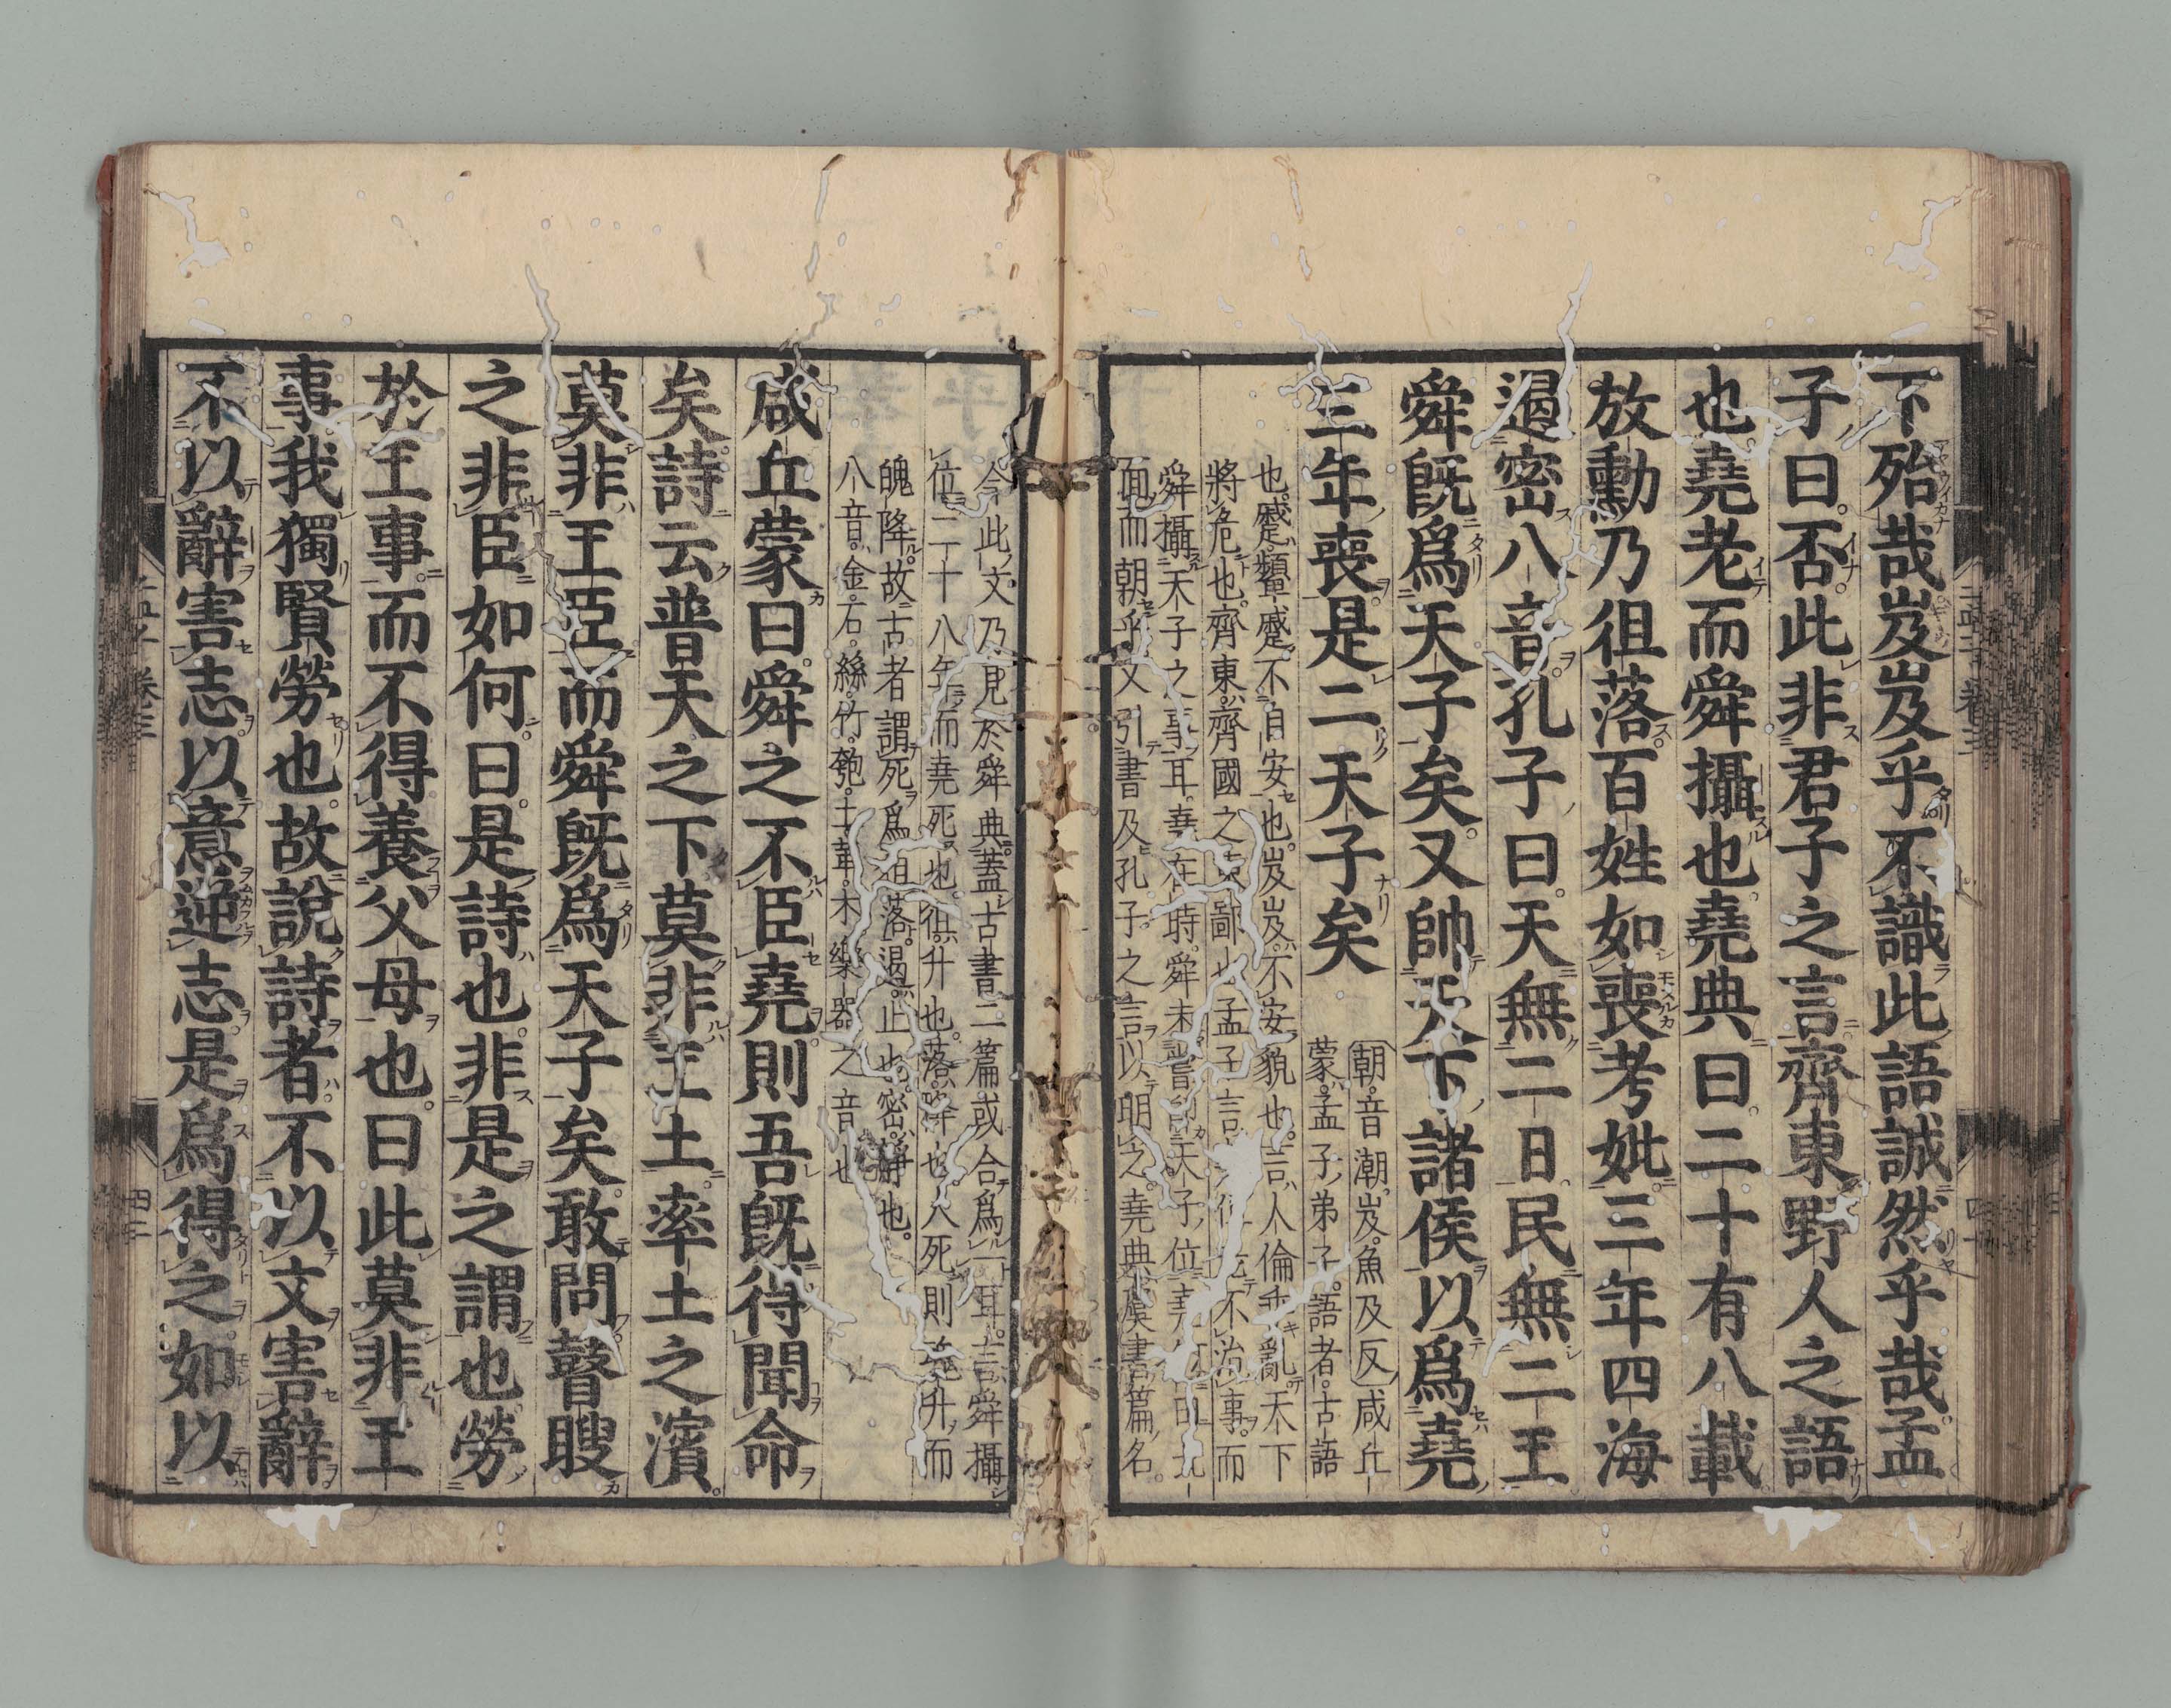 下殆哉岌岌乎不識此語誠然乎哉孟
子曰否此非君子之言齊東野人之語
也堯老而舜攝也堯典曰二十有八載
放勳乃徂落百姓如喪考妣三年四海
遏密八音孔子曰天無二日民無二王
舜既爲天子矣又帥天下諸侯以爲堯
三年喪是二天子矣
朝音潮岌魚及反咸丘
蒙孟子弟子語者古語
也蹙顰蹙不自安也岌岌不安貌也言人倫乖亂天下
將危也齊東齊國之東鄙也孟子言堯但老不治事而
舜攝天子之事耳堯在時舜未嘗即天子位堯何由北
面而朝乎又引書及孔子之言以明之堯典虞書篇名
今此文乃見於舜典蓋古書二篇或合爲一耳言舜攝
位二十八年而堯死也徂升也落降也人死則魂升而
魄降故古者謂死爲徂落遏止也密靜也
八音金石絲竹匏土革木樂器之音也
咸丘蒙曰舜之不臣堯則吾既得聞命
矣詩云普天之下莫非王土率土之濱
莫非王臣而舜既爲天子矣敢問瞽瞍
之非臣如何曰是詩也非是之謂也勞
於王事而不得養父母也曰此莫非王
事我獨賢勞也故說詩者不以文害辭
不以辭害志以意逆志是爲得之如以